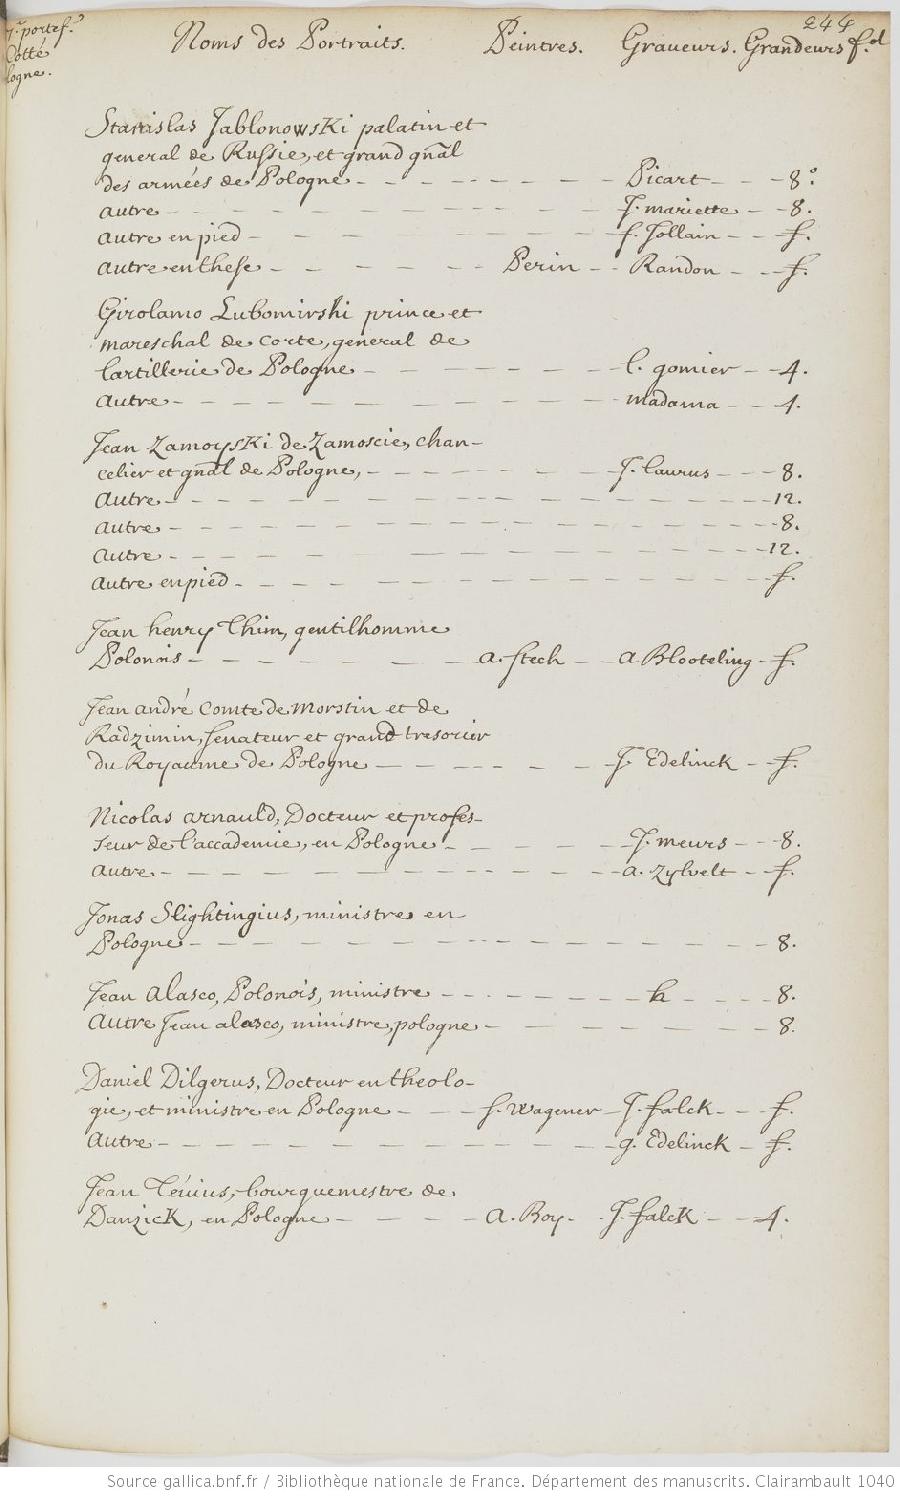 244
7.e portef.e
Cotté
logne.
Noms des Portraits. Peintres. Graveurs. Grandeurs f.d
Stanislas Jablonowski palatin et
general de Russie, et grand gnāl
des armées de Pologne - - - - - - - Picart - - - 8.o
autre - - - - - - - J. mariette - - 8.
autre en pied - - - - - - - f. Jollain - - - f.
autre en these - - - - - Perin - - Randon - - - f.
Girolamo Lubomirski prince et
mareschal de corte, general de
l'artillerie de Pologne - - - - - - - l. gomier - - 4.
autre - - - - - - - madama - - - 4.
Jean Zamoyski de Zamoscie, chan-
celier et gnāl de Pologne, - - - - - - - J. laurus - - - 8.
autre - - - - - - - 12.
autre - - - - - - - 8.
autre - - - - - - - 12.
autre en pied - - - - - - - f.
Jean henry Thim, gentilhomme
Polonois - - - - - - a. stech - - a Blooteling - f.
Jean andré Comte de Morstin et de
Radzimin, senateur et grand tresorier
du Royaume de Pologne - - - - - - - J. Edelinck - - f.
Nicolas arnauld, Docteur et profes-
seur de l'accademie, en Pologne - - - - - J. meurs - - - 8.
autre - - - - - - - a. zylvelt - f.
Jonas Slightingius, ministre en
Pologne - - - - - - - 8.
Jean alasco, Polonois, ministre - - - - - - - h - - - 8.
autre Jean alasco, ministre, pologne - - - - - - - 8.
Daniel Dilgerus, Docteur en theolo-
gie, et ministre en Pologne - - - f. Wagener - J. falck - - - f.
autre - - - - - - - g. Edelinck - f.
Jean bourguemestre de
Danzick, en Pologne - - - - a. Boy - J. falck - - - 4.
Source gallica.bnf.fr / Bibliothèque nationale de France. Département des manuscrits. Clairambault 1040